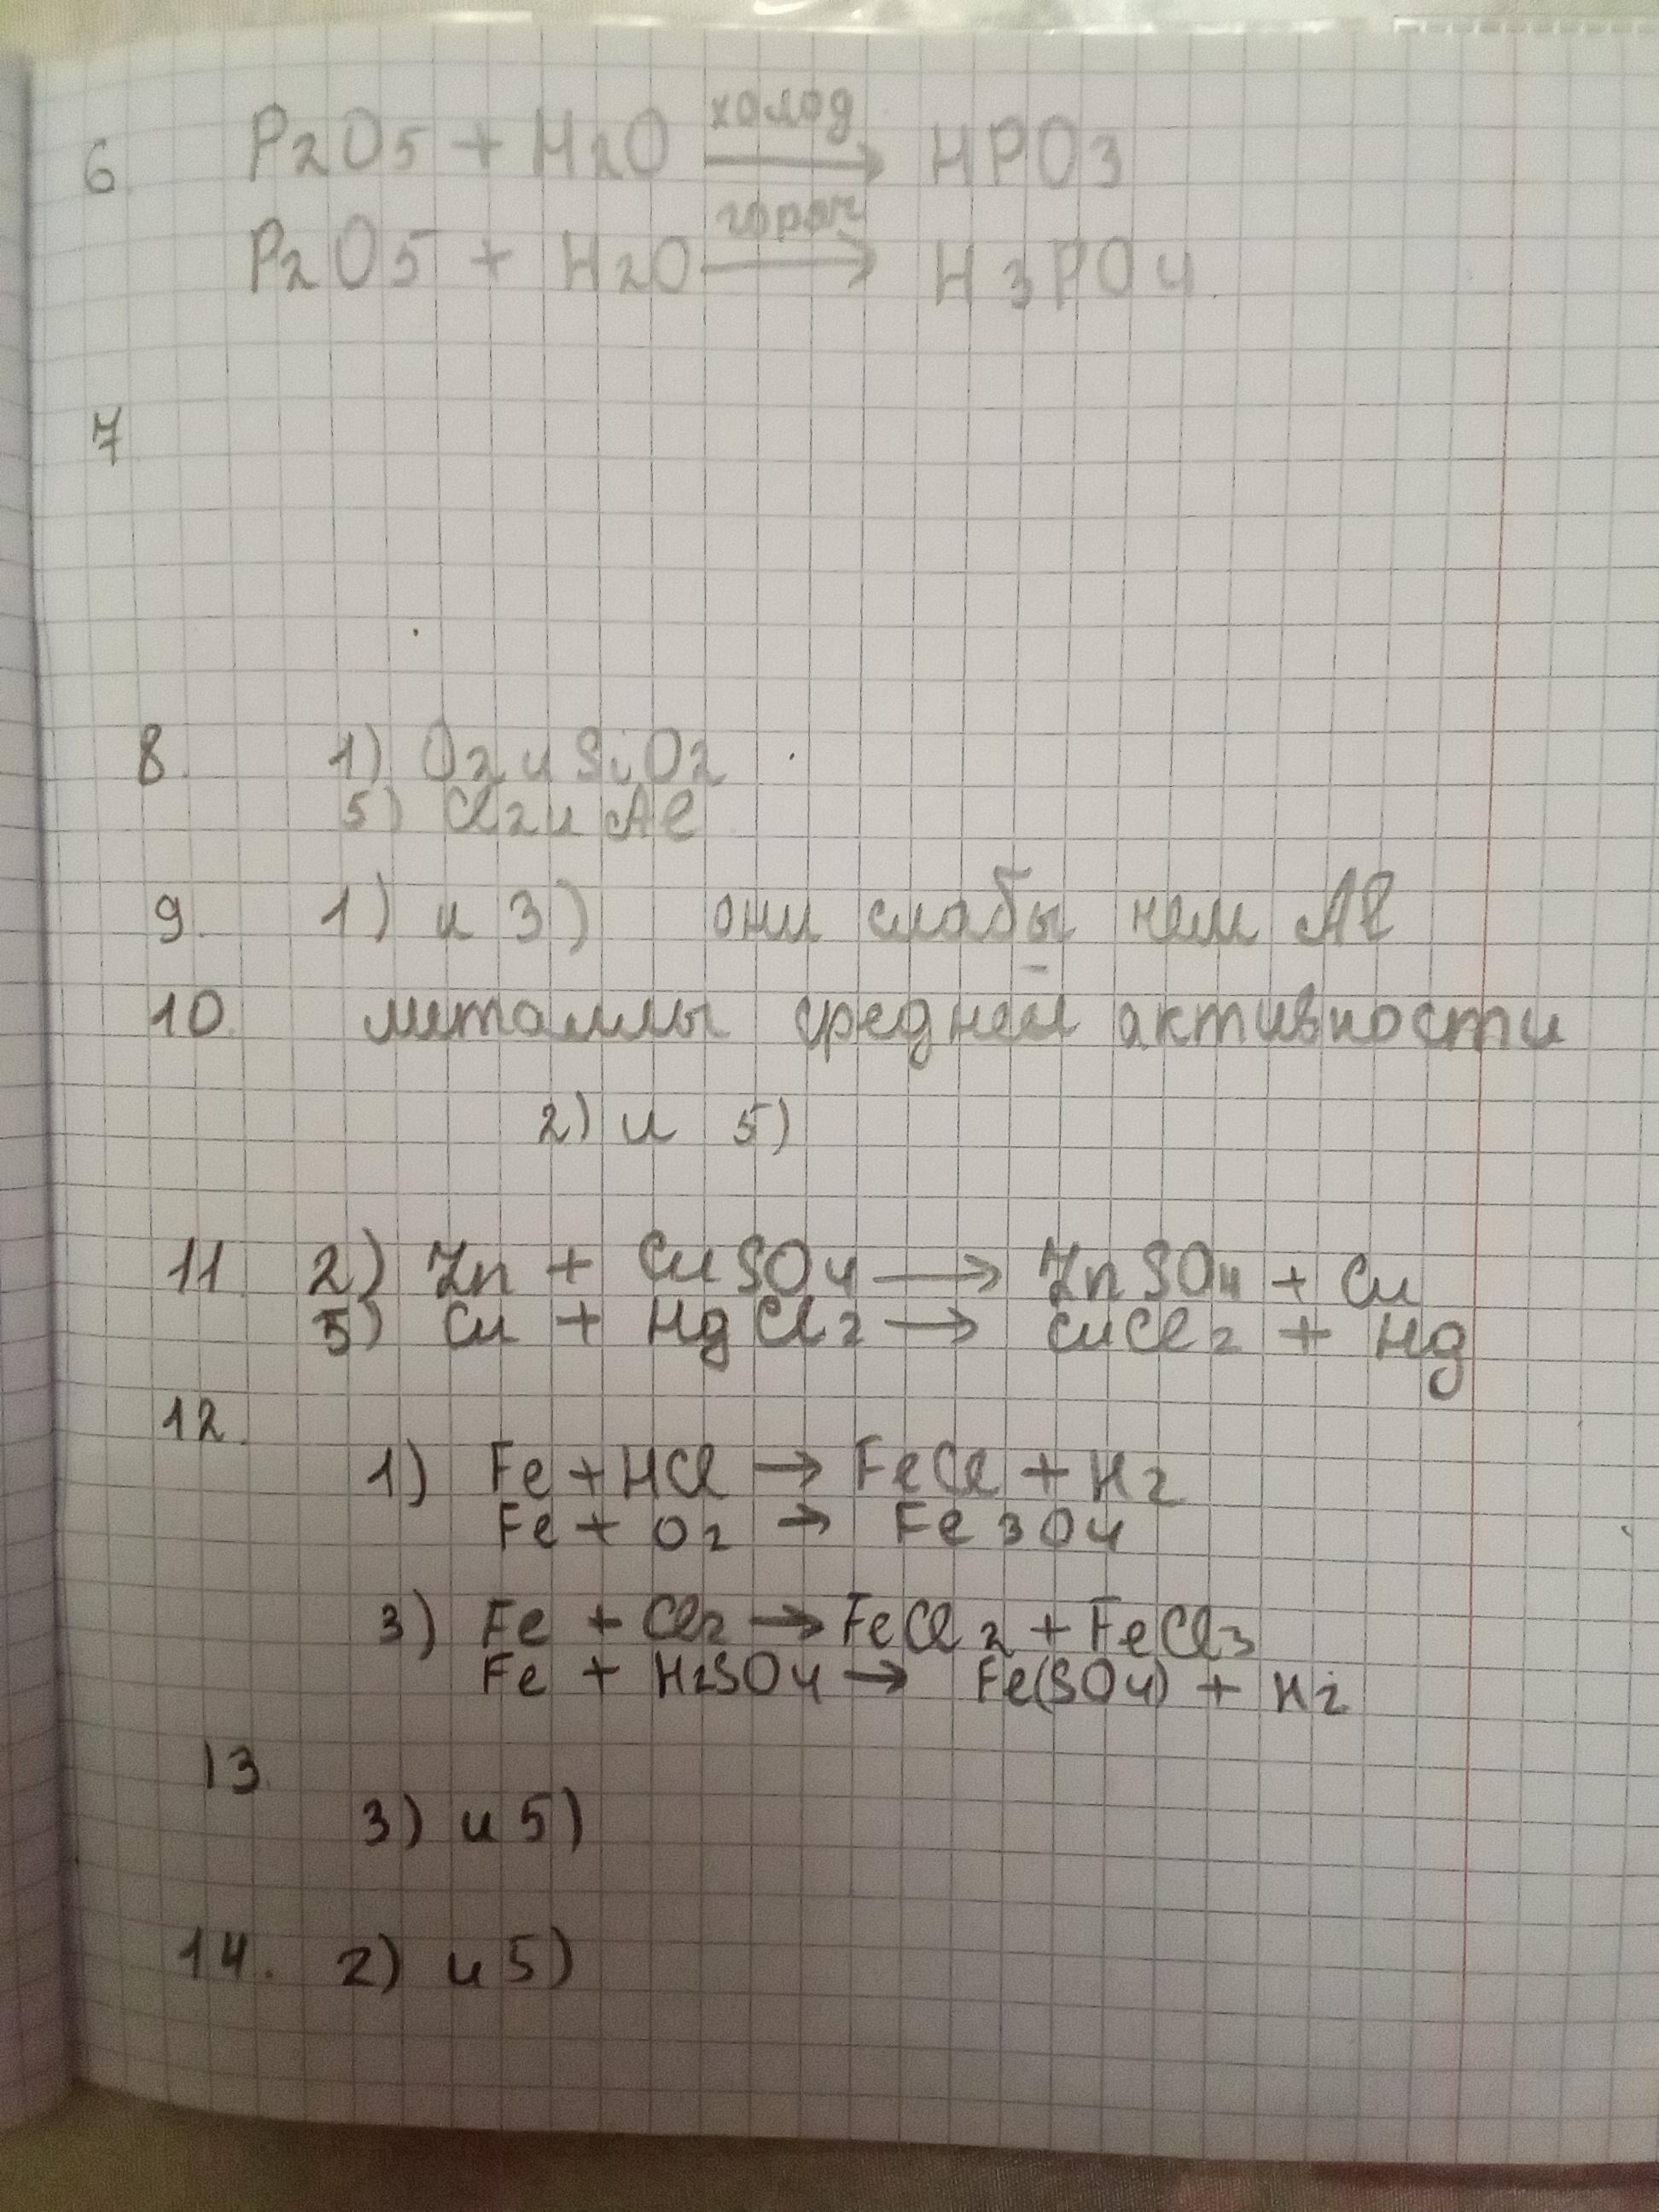 6. P2O5 + H2O холод → HPO3
P2O5 + H2O горяч → H3PO4
7
8. 1) O2 и SiO2
5) Cl2 и Al
9. 1) и 3) они слабы чем Al
10. металлы средней активности
2) и 5)
11. 2) Zn + CuSO4 → ZnSO4 + Cu
5) Cu + HgCl2 → CuCl2 + Hg
12.
1) Fe + HCl → FeCl + H2
Fe + O2 → Fe3O4
3) Fe + Cl2 → FeCl2 + FeCl3
Fe + H2SO4 → Fe(SO4) + H2
13.
3) и 5)
14. 2) и 5)